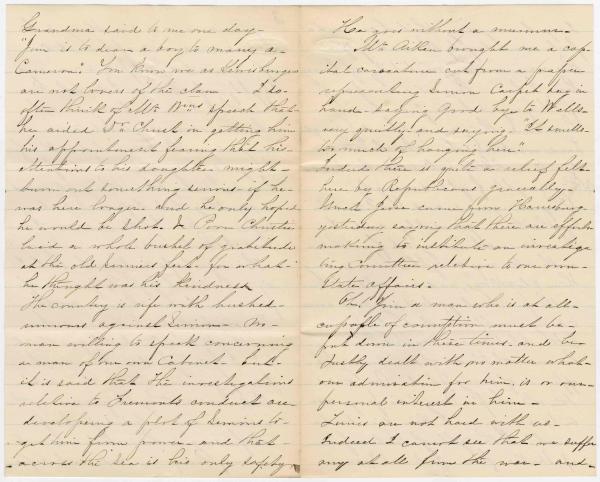 Grandma said to me one day-
"Jim is to dear a boy to marry a-
Cameron". You know we as Lewisburgers
are not lovers of the clan I so-
often think of Mr Wms speech that-
he aided Dr Christ in getting him
his appointment fearing that his-
attentions to his daughter might-
burn out something serious- if he-
was here longer- and he only hoped
he would be shot. & Poor Christie
laid a whole bushel of gratitude
at the old Sinners feet- for what-
he thought was his kindness
The country is rife with hushed-
rumours against Simon- No-
man willing to speak concerning
a man of our own Cabinet- but-
it is said that the investigations
relative to Fremonts conduct are-
developing a plot of Simons to-
get him from power- and that-
across the sea is his only safety
He goes without a murmur-
Mr Aiken brought me a cap-
ital caricature cut from a paper-
representing Simon Carpet bag in
hand- saying Good bye to Wells-
very quietly- and saying- "It smells
too much of hanging here".
Indeed there is quite a relief felt-
here by Republicans generally-
Uncle came from Harrisburg
yesterday saying that there are efforts
making to institute an investiga
ting Committee relative to our own-
State affairs-
Oh! Jim a man who is at all-
capable of corruption must be-
put down in these times- and be-
justly dealt with no matter what-
our admiration for him, is or our-
personal interest in him-
Times are not hard with us-
Indeed I cannot see that we suffer
any at all from the war- and-